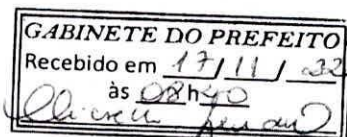 GABINETE DO PREFEITO
Recebido em 17/11/22
às 08h40